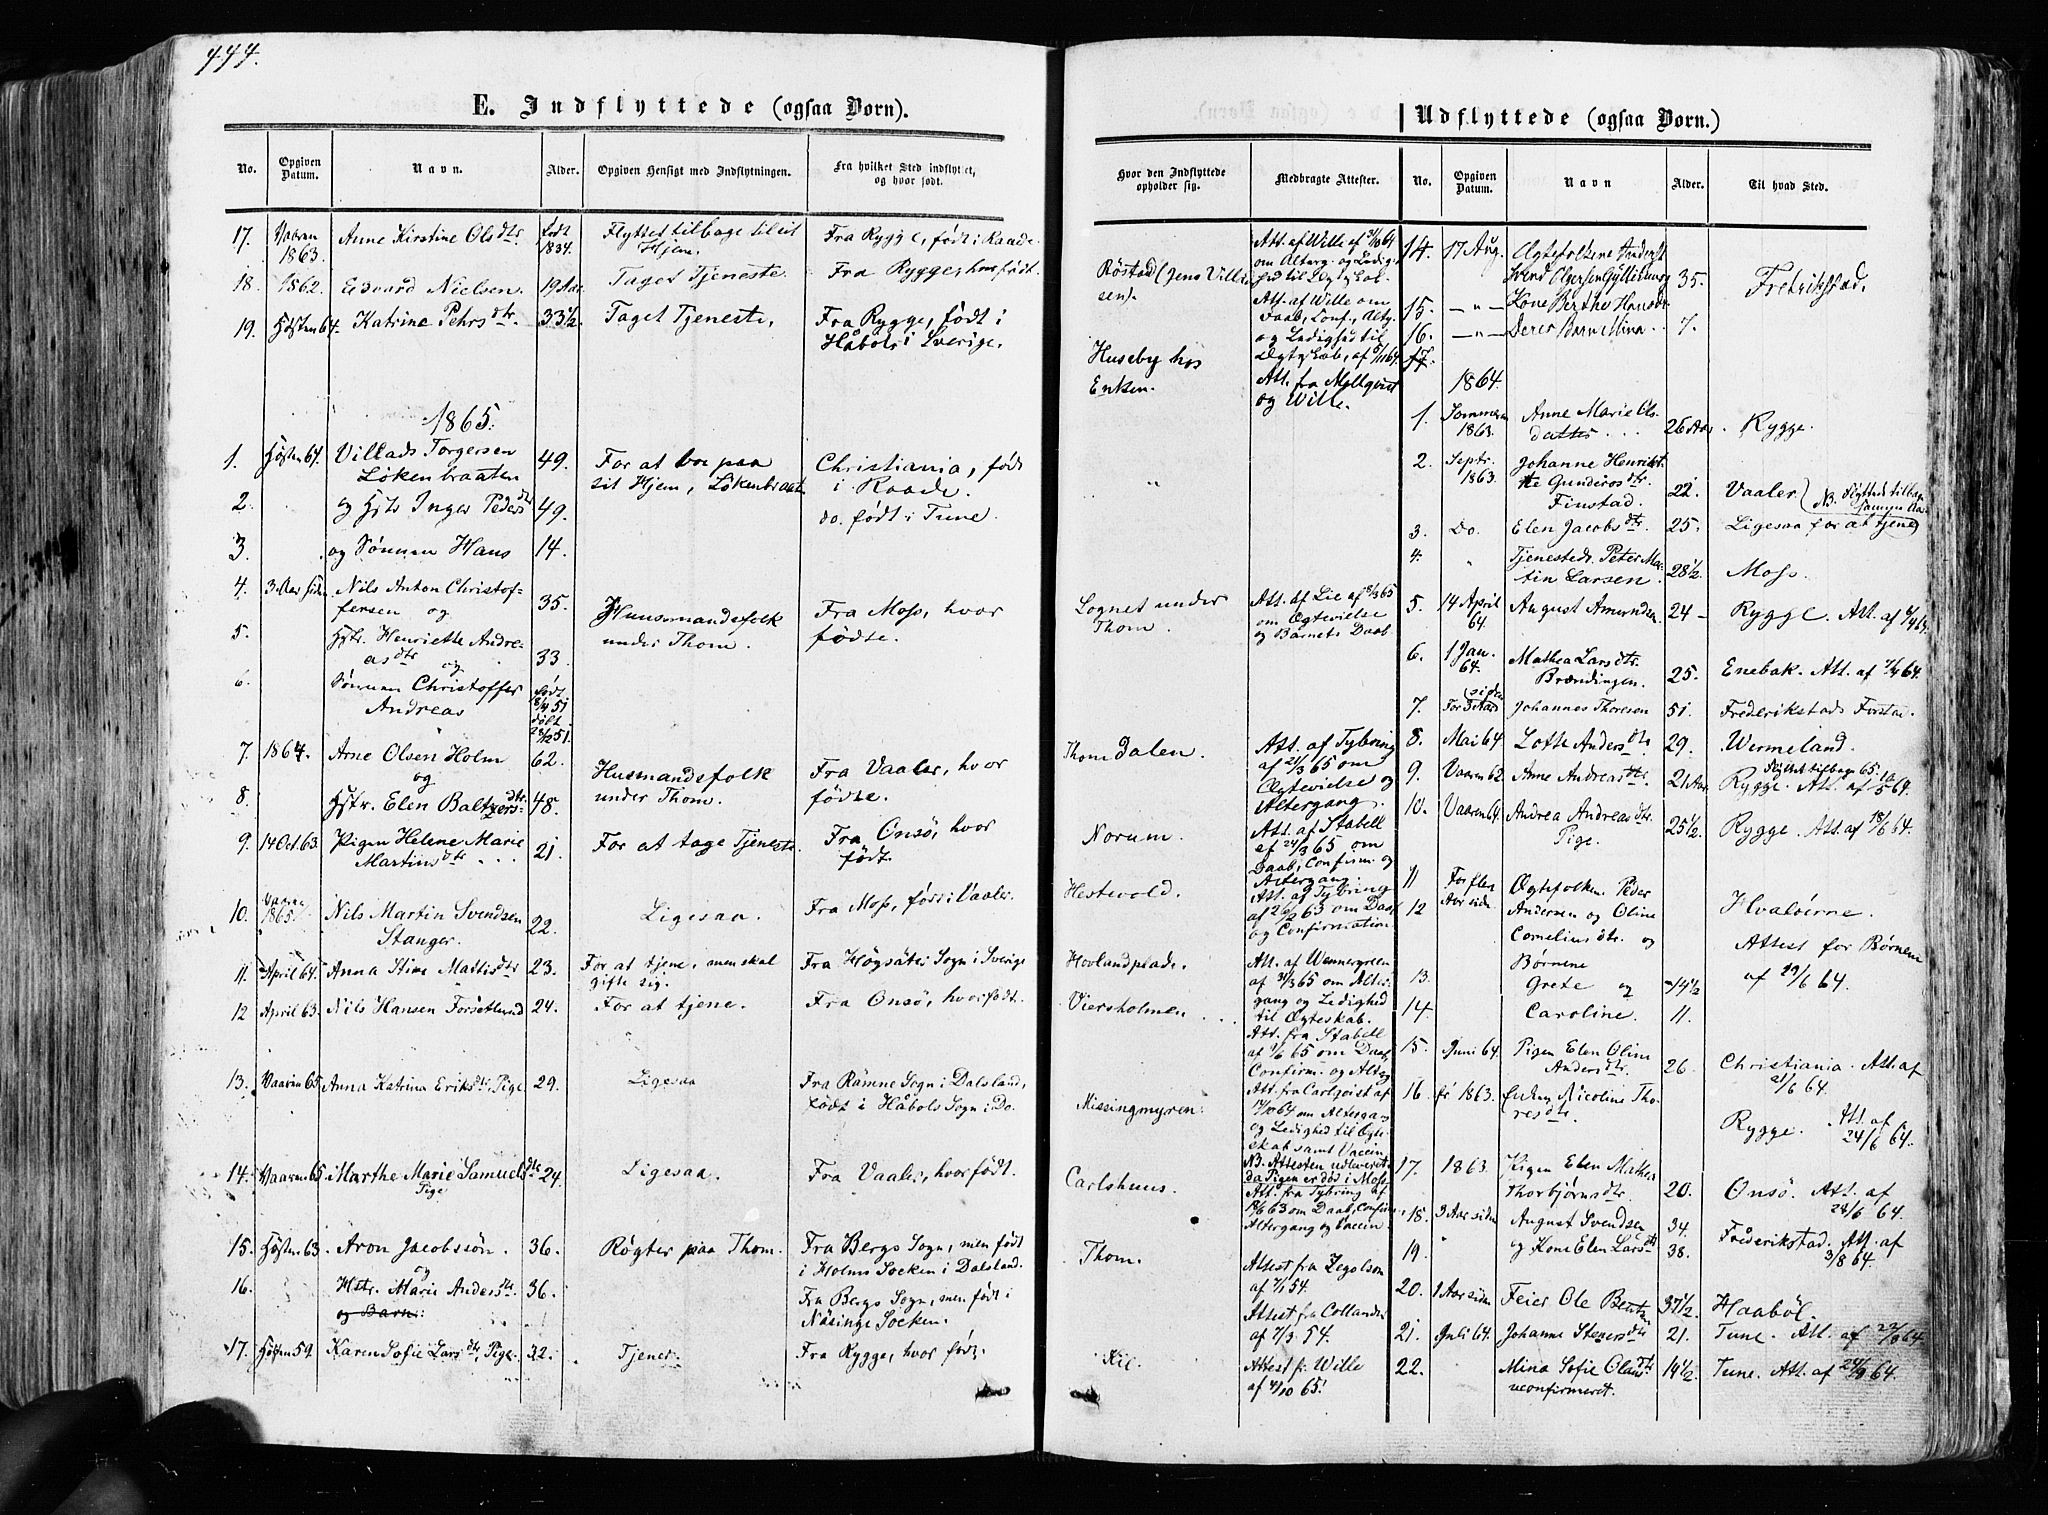 444.
E. Indflyttede (ogsaa Børn).
No. Opgiven Datum. Navn. Alder. Opgiven Hensigt med Indflytningen. Fra hvilket Sted indflyttet, og hvor født.
17. Vaaren 1863. Anne Kirstine Olsdtr. Født 1834. Flyttet tilbage til sit Hjem. Fra Rygge, født i Raade.
18. 1862. Edvard Nielsen. 19 Aar Taget Tjeneste. Fra Rygge, hvor født.
19. Høsten 64. Katrine Pehrsdtr. 33½. Taget Tjeneste, Fra Rygge, født i
Håbols i Sverige.
1865.
1. Høsten 64. Villads Torgersen 49. For at boe paa Christiania, født
Løkenbraaten sit Hjem, Løkenbraaten i Raade.
2. og Hstr Inger Pedersdtr 49. do. født i Tune.
3. og Sønnen Hans 14.
4. 3 Aar siden Nils Anton Christof-
fersen og 35. Huusmandsfolk Fra Moss, hvor
5. Hstr. Henriette Andre- under Thom. fødte.
asdtr og 33.
6. Sønnen Christoffer født
Andreas 51 døbt 28/12 51.
7. 1864. Arne Olsen Holm 62. Husmandsfolk Fra Vaaler, hvor
og under Thom. fødte.
8. Hstr. Elen Baltzersdtr. 48.
9. 14 Oct. 63. Pigen Helene Marie 21. For at tage Tjeneste. Fra Onsö, hvor
Martinsdtr. født.
10. Vaaren 1865. Nils Martin Svendsen 22. Ligesaa. Fra Moss, født i Vaaler.
Stanger.
11. April 64. Anna Stina Mattisdtr 23. For at tjene, men skal Fra Högsäters Sogn i Sverige
gifte sig.
12 April 63. Nils Hansen Forsætlund 24. For at tjene. Fra Onsö, hvor født.
13. Vaaren 65. Anna Katrina Eriksdtr. Pige 29. Ligesaa Fra Rämne Sogn i Dalsland,
født i Håbols Sogn i Do.
14. Vaaren 65. Marthe Marie Samuelsdtr 24. Ligesaa. Fra Vaaler, hvor født.
Pige
15. Høsten 63. Aron Jacobssön. 36. Røgter paa Thom. Fra Bergs Sogn, men født
og i Holms Socken i Dalsland.
16. Hstr. Marie Andersdtr 36. Fra Bergs Sogn, men født i
og Barn: Näsinge Socken.
17. Høsten 59. Karen Sofie Larsdtr, Pige. 32. Tjener. Fra Rygge, hvor født.
Hvor den Indflyttede opholder sig. Medbragte Attester.
Att. af Wille af
om Alterg. og Ledig-
Röstad (Jens Villad- hed til Ægteskab.
sen). Att. af Wille om
Daab, Conf., Altg.
og Ledighed til
Huseby hos Ægteskab, af 5/11 64.
Enken. Att. fra Mollqvist
og Wille.
"
Lognet under Att. af Lie af 65
Thom. om Ægtevielse
og Barnets Daab.
Thom Dalen. Att. af Tybring
af 21/3 65 om
Ægtevielse og
Altergang.
Norum. Att. af Stabell
af 24/3 65 om
Daab, Confirm. og
Altergang.
Hestevold. Att. af Tybring
af 26/2 63 om Daab
og Confirmation.
Hovlandplads. Att. af Wennergreen
af 31/3 65 om Alter-
gang og Ledighed
Viersholmen til Ægteskab.
Att. fra Stabell
af 65 om Daab
Confirm. og Alterg.
Missingmyren. Att. fra Carlqvist af
64 om Altergang
og Ledighed til Ægte-
skab samt Vaccin.
NB. Attesten udleveret
da Pigen er död i Moss.
Carlshuus. Att. fra Tybring af
63 om Daab, Confirm.,
Altergang og Vaccin.
Thom. Attest fra Zegolson
af 7/1 54.
Attest fra Collander
af 7/3 54.
Kil. Attest fr. Wille
af 4/10 65.
Udflyttede (ogsaa Børn.)
No. Opgiven Datum. Navn Alder. Til hvad Sted.
14. 17 Aug. Ægtefolkene Anders
Svend Olgerson Gyllensvaag 35. Fredrikstad.
15. — " — Kone Berthe Hansdtr
16. — " — Deres Barn Mina.. 7.
17.
1864.
1. Sommeren 1863. Anne Marie Ols-
datter... 26 Aar. Rygge.
2. Septr. 1863. Johanne Henriet-
te Gundersdtr. 22. Vaaler (NB. Flyttede tilbage samme Aar
Finstad.
3. Do. Elen Jacobsdtr 25. Ligesaa for at tjene)
4. " Tjenestedr. Peter Mar-
tin Larsen. 28½. Moss.
5. 14 April 64. August Amundsen 24 – Rygge. Att. af 4/4 64.
6. 1 Jan. 64. Mathea Larsdtr.
Brændingen. 25. Enebak. Att. af 64.
7. For 5 Aar siden Johannes Thoresen 51. Frederikstads Forstad.
8. Mai 64 Lotte Andersdtr 29. Wermeland.
9. Vaaren 62. Anne Andreasdtr. 21 Aar. Rygge. Att. af 10/5 64. Flyttet tilbage 65.
10. Vaaren 64. Andrea Andreasdtr 25½. Rygge. Att. af 18/6 64.
Pige.
11 For flere Ægtefolkene Peder
12 Aar siden Andersen og Oline Hvalöerne.
Cornelius dtr. og Attest for Børnene
13. Børnene af 23/6 64.
Grete og 14½
14. Caroline. 11.
15. Juni 64. Pigen Elen Oline
Andersdtr. 26. Christiania. Att. af
21/6 64.
16. fr 1863. Enken Nicoline Tho-
resdtr. Rygge. Att. af 24/6 64.
17. 1863. Pigen Elen Mathea
Thorbjörnsdtr. 20. Onsö. Att. af
28/6 64.
18. 3 Aar siden August Svendsen 34. Frederikstad. Att. af
19. " og Kone Elen Larsdtr 38. 3/8 64.
20. 1 Aar siden Feier Ole Bentzen 37½. Haaböl.
21. Juli 64. Johanne Stenersdtr 21. Tune. Att. af 22/8 64.
22. Mina Sofie Olausdtr 14½. Tune. Att. af 24/9 64.
uconfirmeret.